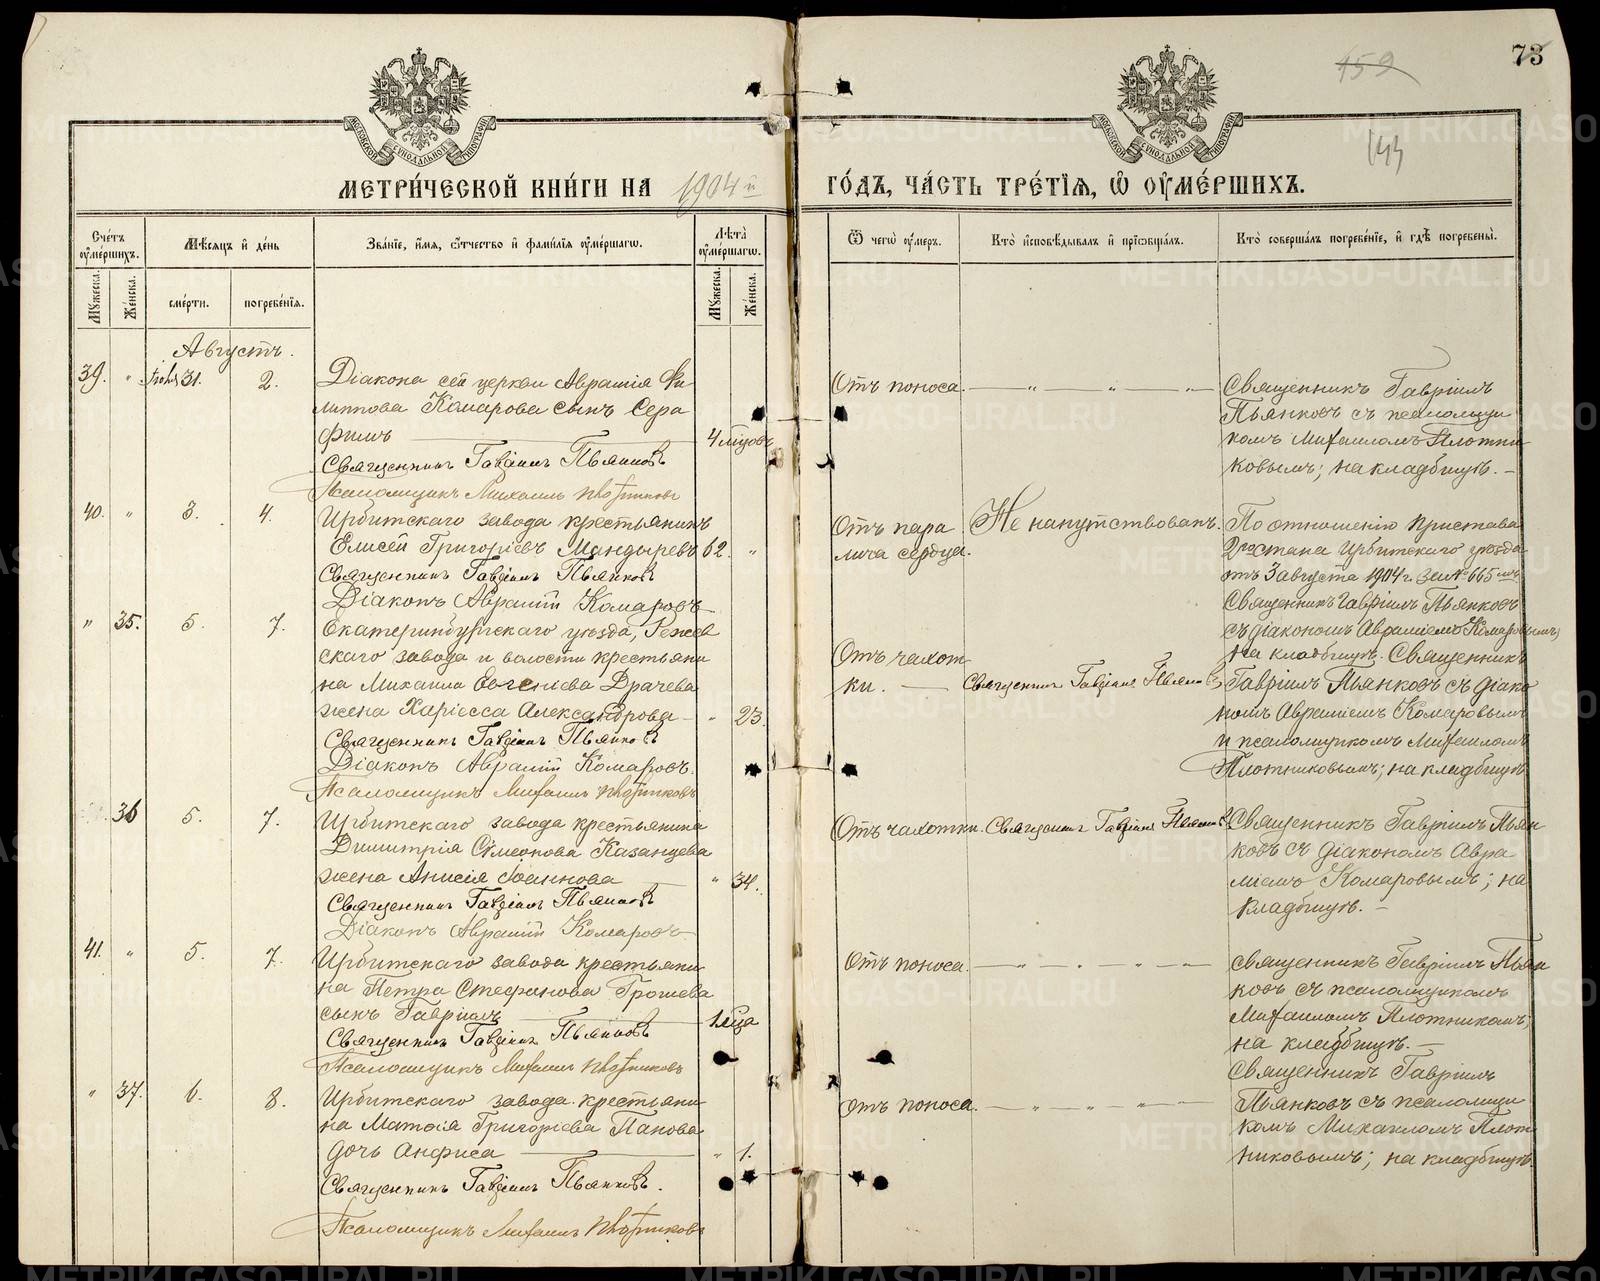 73
159
144
МОСКОВСКОЙ СѴНОДАЛЬНОЙ ТИПОГРАФІИ
МОСКОВСКОЙ СѴНОДАЛЬНОЙ ТИПОГРАФІИ
МЕТРИ́ЧЕСКОЙ КНИ́ГИ НА 1904 й
ГО́ДЪ, ЧА́СТЬ ТРЕ́ТІѦ, Ѡ ОУМЕ́РШИХЪ.
Сче́тъ оуме́ршихъ.
Мѣ́сяцъ и де́нь
Зва́нїе, и́мя, ѻ́тчество и фами́лїя оуме́ршагѡ.
Лѣ́та оуме́ршагѡ.
Ѿ чегѡ̀ оу́меръ.
Кто̀ и҆сповѣ́дывалъ и҆ прїѡбща́лъ.
Кто̀ соверша́лъ погребе́нїе, и҆ гдѣ̀ погребены̀.
Мꙋ́жеска.
Же́нска.
сме́рти.
погребе́нїя.
Мꙋ́жеска.
Же́нска.
Августъ.
39. " Іюля 31. 2.
Діакона сей церкви Аврамія Фи
липпова Комарова сынъ Сера
фимъ
4 мѣсцовъ
Священникъ Гавріилъ Пьянковъ
Псаломщикъ Михаилъ Плотниковъ
Отъ поноса.
Священникъ Гавріилъ
Пьянковъ съ псаломщи
комъ Михаиломъ Плотни
ковымъ; на кладбищѣ.
40. " 3. 4.
Ирбитскаго завода крестьянинъ
Елисей Григорьевъ Мандыревъ 62. "
Священникъ Гавріилъ Пьянковъ
Діаконъ Аврамій Комаровъ
Отъ пара
лича сердца.
Не напутствованъ.
По отношенію Пристава
2го стана Ирбитскаго уѣзда
отъ 3 августа 1904 г. за № 665 мъ
Священникъ Гавріилъ Пьянковъ
съ діакономъ Авраміемъ Комаровымъ;
на кладбищѣ.
" 35. 5. 7.
Екатеринбургскаго уѣзда, Режев
скаго завода и волости крестьяни
на Михаила Евгеніева Драчева
жена Харіесса Александрова " 23.
Священникъ Гавріилъ Пьянковъ
Діаконъ Аврамій Комаровъ.
Псаломщикъ Михаилъ Плотниковъ
Отъ чахот
ки.
Священникъ Гавріилъ Пьянковъ
Священникъ
Гавріилъ Пьянковъ съ діако
номъ Авраміемъ Комаровымъ
и псаломщикомъ Михаиломъ
Плотниковымъ; на кладбищѣ
36 5. 7.
Ирбитскаго завода крестьянина
Димитрія Сѵмеонова Казанцева
жена Анисія Іоаннова " 34.
Священникъ Гавріилъ Пьянковъ
Діаконъ Аврамій Комаровъ
Отъ чахотки.
Священникъ Гавріилъ Пьянковъ
Священникъ Гавріилъ Пьян
ковъ съ діакономъ Авра
міемъ Комаровымъ; на
кладбищѣ.
41. " 5. 7.
Ирбитскаго завода крестьяни
на Петра Стефанова Грошева
сынъ Гавріилъ
1 мѣца
Священникъ Гавріилъ Пьянковъ
Псаломщикъ Михаилъ Плотниковъ
Отъ поноса.
Священникъ Гавріилъ Пьян
ковъ съ псаломщикомъ
Михаиломъ Плотникомъ;
на кладбищѣ.
" 37. 6. 8.
Ирбитскаго завода крестьяни
на Матѳія Григорьева Панова
дочь Анфиса " 1.
Священникъ Гавріилъ Пьянковъ.
Псаломщикъ Михаилъ Плотниковъ
Отъ поноса.
Священникъ Гавріилъ
Пьянковъ съ псаломщи
комъ Михаиломъ Плот
никовымъ; на кладбищѣ.
METRIKI.GASO-URAL.RU